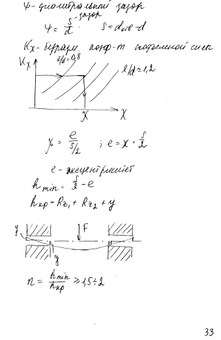 ψ - диаметральный зазор
ψ = S/d - зазор S = dотв - d
Kx - безразм. коэф-т подъемной силы
Kx
e/d = 0,8
l/d = 1,2
X
X
χ = e/(S/2) ; e = x · S/2
e - эксцентриситет
h min = S/2 - e
h кр = Rz1 + Rz2 + y
F
y
y
n = h min / h кр ≥ 1,5 ÷ 2
33